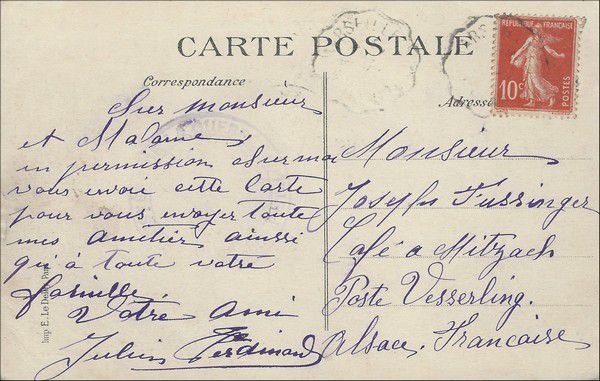 CARTE POSTALE
Correspondance
Adresse
REPUBLIQUE FRANÇAISE
10c
Cher monsieur
et Madame
en permission cher moi
vous envoie cette Carte
pour vous envoyer toute
mes amitier ainssi
qu'à toute votre
famille.
Votre ami
Julien Ferdinand
Monsieur
Joseph Fussinger
Café a Mitzach
Poste Vesserling.
Alsace Francaise
Imp. E. Le Deley, Paris